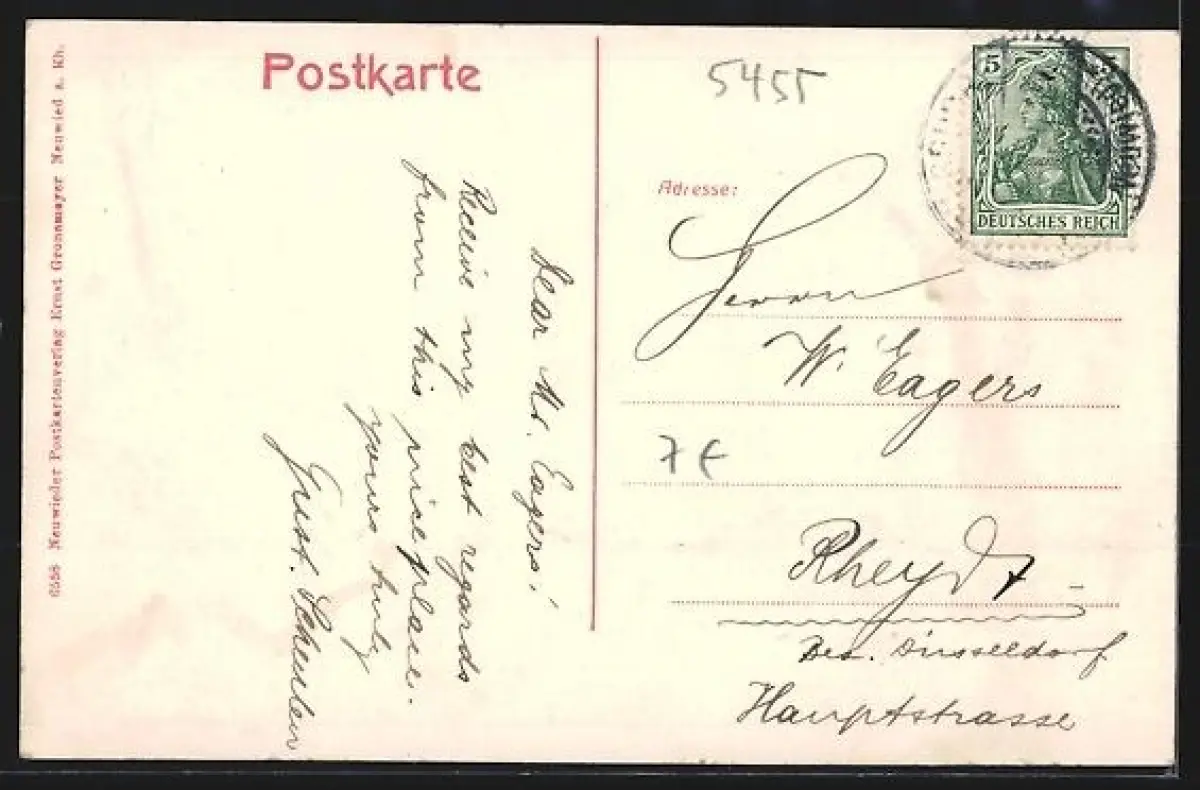 Postkarte
6558 Neuwieder Postkartenverlag Ernst Grunnmayer Neuwied a. Rh.
Dear Mr. Eagers!
Receive my best regards
from this nice place.
yours truly
Gust.
5455
5
DEUTSCHES REICH
Adresse:
Herrn
W. Eagers
7 €
Rheydt
Bez. Düsseldorf
Hauptstrasse